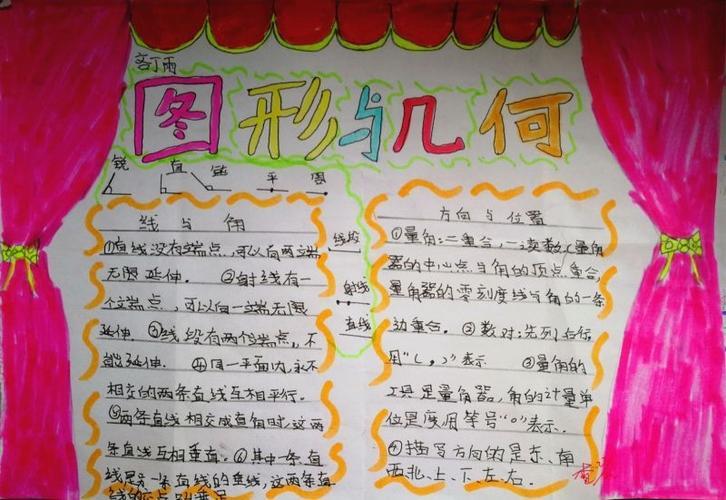 图形与几何
锐 直 钝 平 周
线与角
①直线没有端点,可以向两端
无限延伸. ②射线有一
个端点,可以向一端无限
延伸. ③线段有两个端点,不
能延伸. ④同一平面内,永不
相交的两条直线互相平行.
⑤两条直线相交成直角时,这两
条直线互相垂直.⑥其中一条直
线是另一条直线的垂线,这两条直
线的
线段
射线
直线
方向与位置
①量角:二重合,一读数(量角
器的中心点与角的顶点重合,
量角器的零刻度线与角的一条
边重合. ②数对:先列后行,
用"( , )"表示 ③量角的
工具是量角器,角的计量单
位是度用符号"°"表示.
④描写方向的是东、南
西北、上、下、左、右.